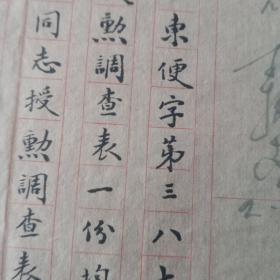 東便字第三八
勲調查表一份
同志授勲調查表